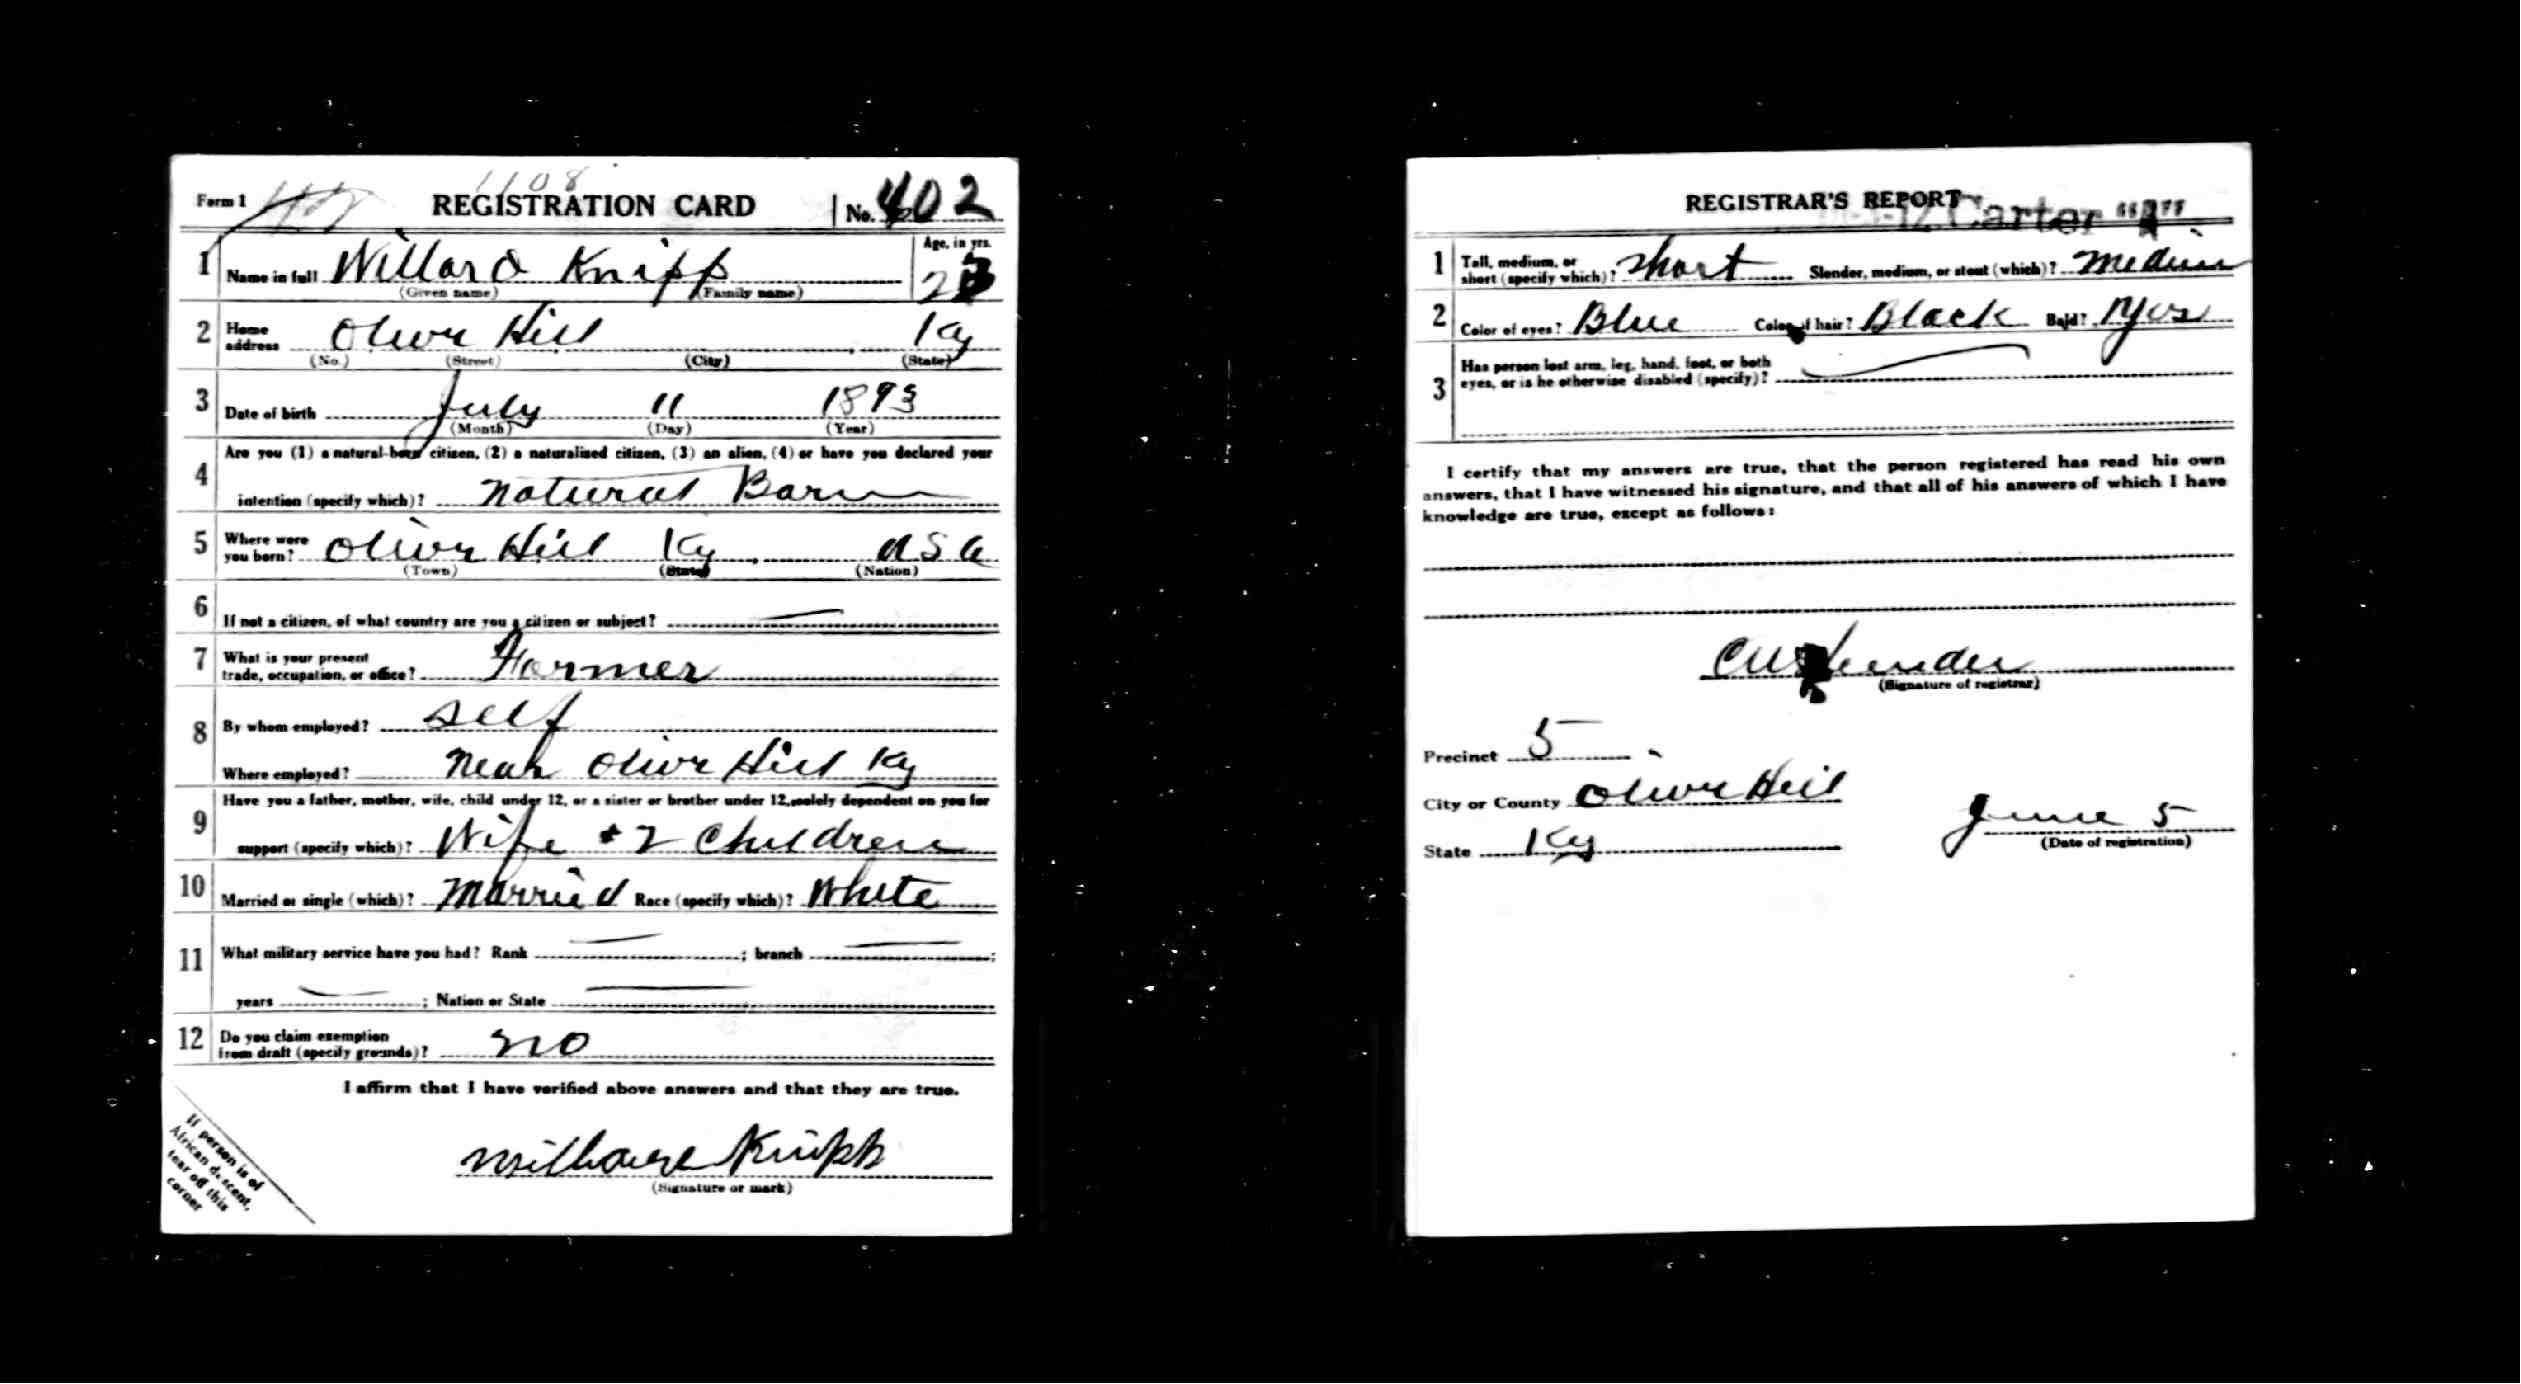 1108
Form 1 REGISTRATION CARD No. 402
1 Name in full Willard Knipp Age, in yrs.
(Given name) (Family name) 23
2 Home address Olive Hill Ky
(No.) (Street) (City) (State)
3 Date of birth July 11 1893
(Month) (Day) (Year)
4 Are you (1) a natural-born citizen, (2) a naturalized citizen, (3) an alien, (4) or have you declared your
intention (specify which)? Natural Born
5 Where were you born? Olive Hill Ky, USA
(Town) (State) (Nation)
6 If not a citizen, of what country are you a citizen or subject?
7 What is your present
trade, occupation, or office? Farmer
8 By whom employed? Self
Where employed? Near Olive Hill Ky
9 Have you a father, mother, wife, child under 12, or a sister or brother under 12, solely dependent on you for
support (specify which)? Wife + 2 Children
10 Married or single (which)? Married Race (specify which)? White
11 What military service have you had? Rank ; branch ;
years ; Nation or State
12 Do you claim exemption
from draft (specify grounds)? No
I affirm that I have verified above answers and that they are true.
Willard Knipp
(Signature or mark)
If person is of
African descent,
tear off this
corner
REGISTRAR'S REPORT
Carter "A"
1 Tall, medium, or
short (specify which)? Short Slender, medium, or stout (which)? Medium
2 Color of eyes? Blue Color of hair? Black Bald? Yes
3 Has person lost arm, leg, hand, foot, or both
eyes, or is he otherwise disabled (specify)?
I certify that my answers are true, that the person registered has read his own
answers, that I have witnessed his signature, and that all of his answers of which I have
knowledge are true, except as follows:
(Signature of registrar)
Precinct 5
City or County Olive Hill
State Ky June 5
(Date of registration)